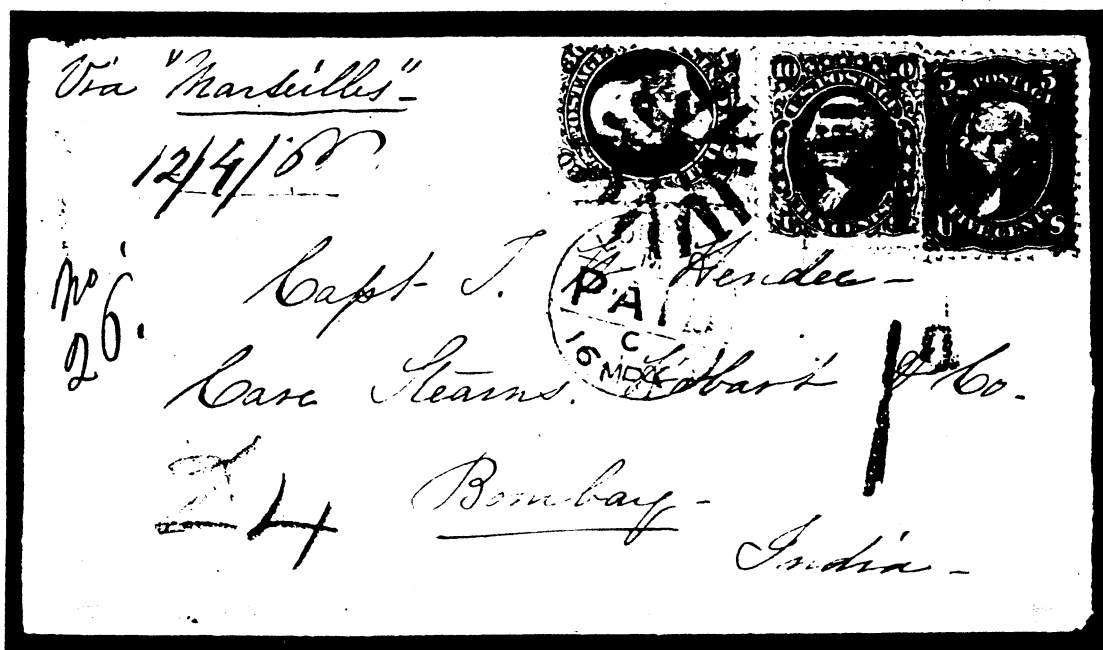 Via "Marseilles"
12/4/
No.
26.
Capt J. H. Hendee
Care Stearns. Hobart & Co.
24
Bombay
India
10 U.S. POSTAGE 10
TEN CENTS
5 U.S. POSTAGE 5
U FIVE CENTS S
PAI
C
16 MD
1d